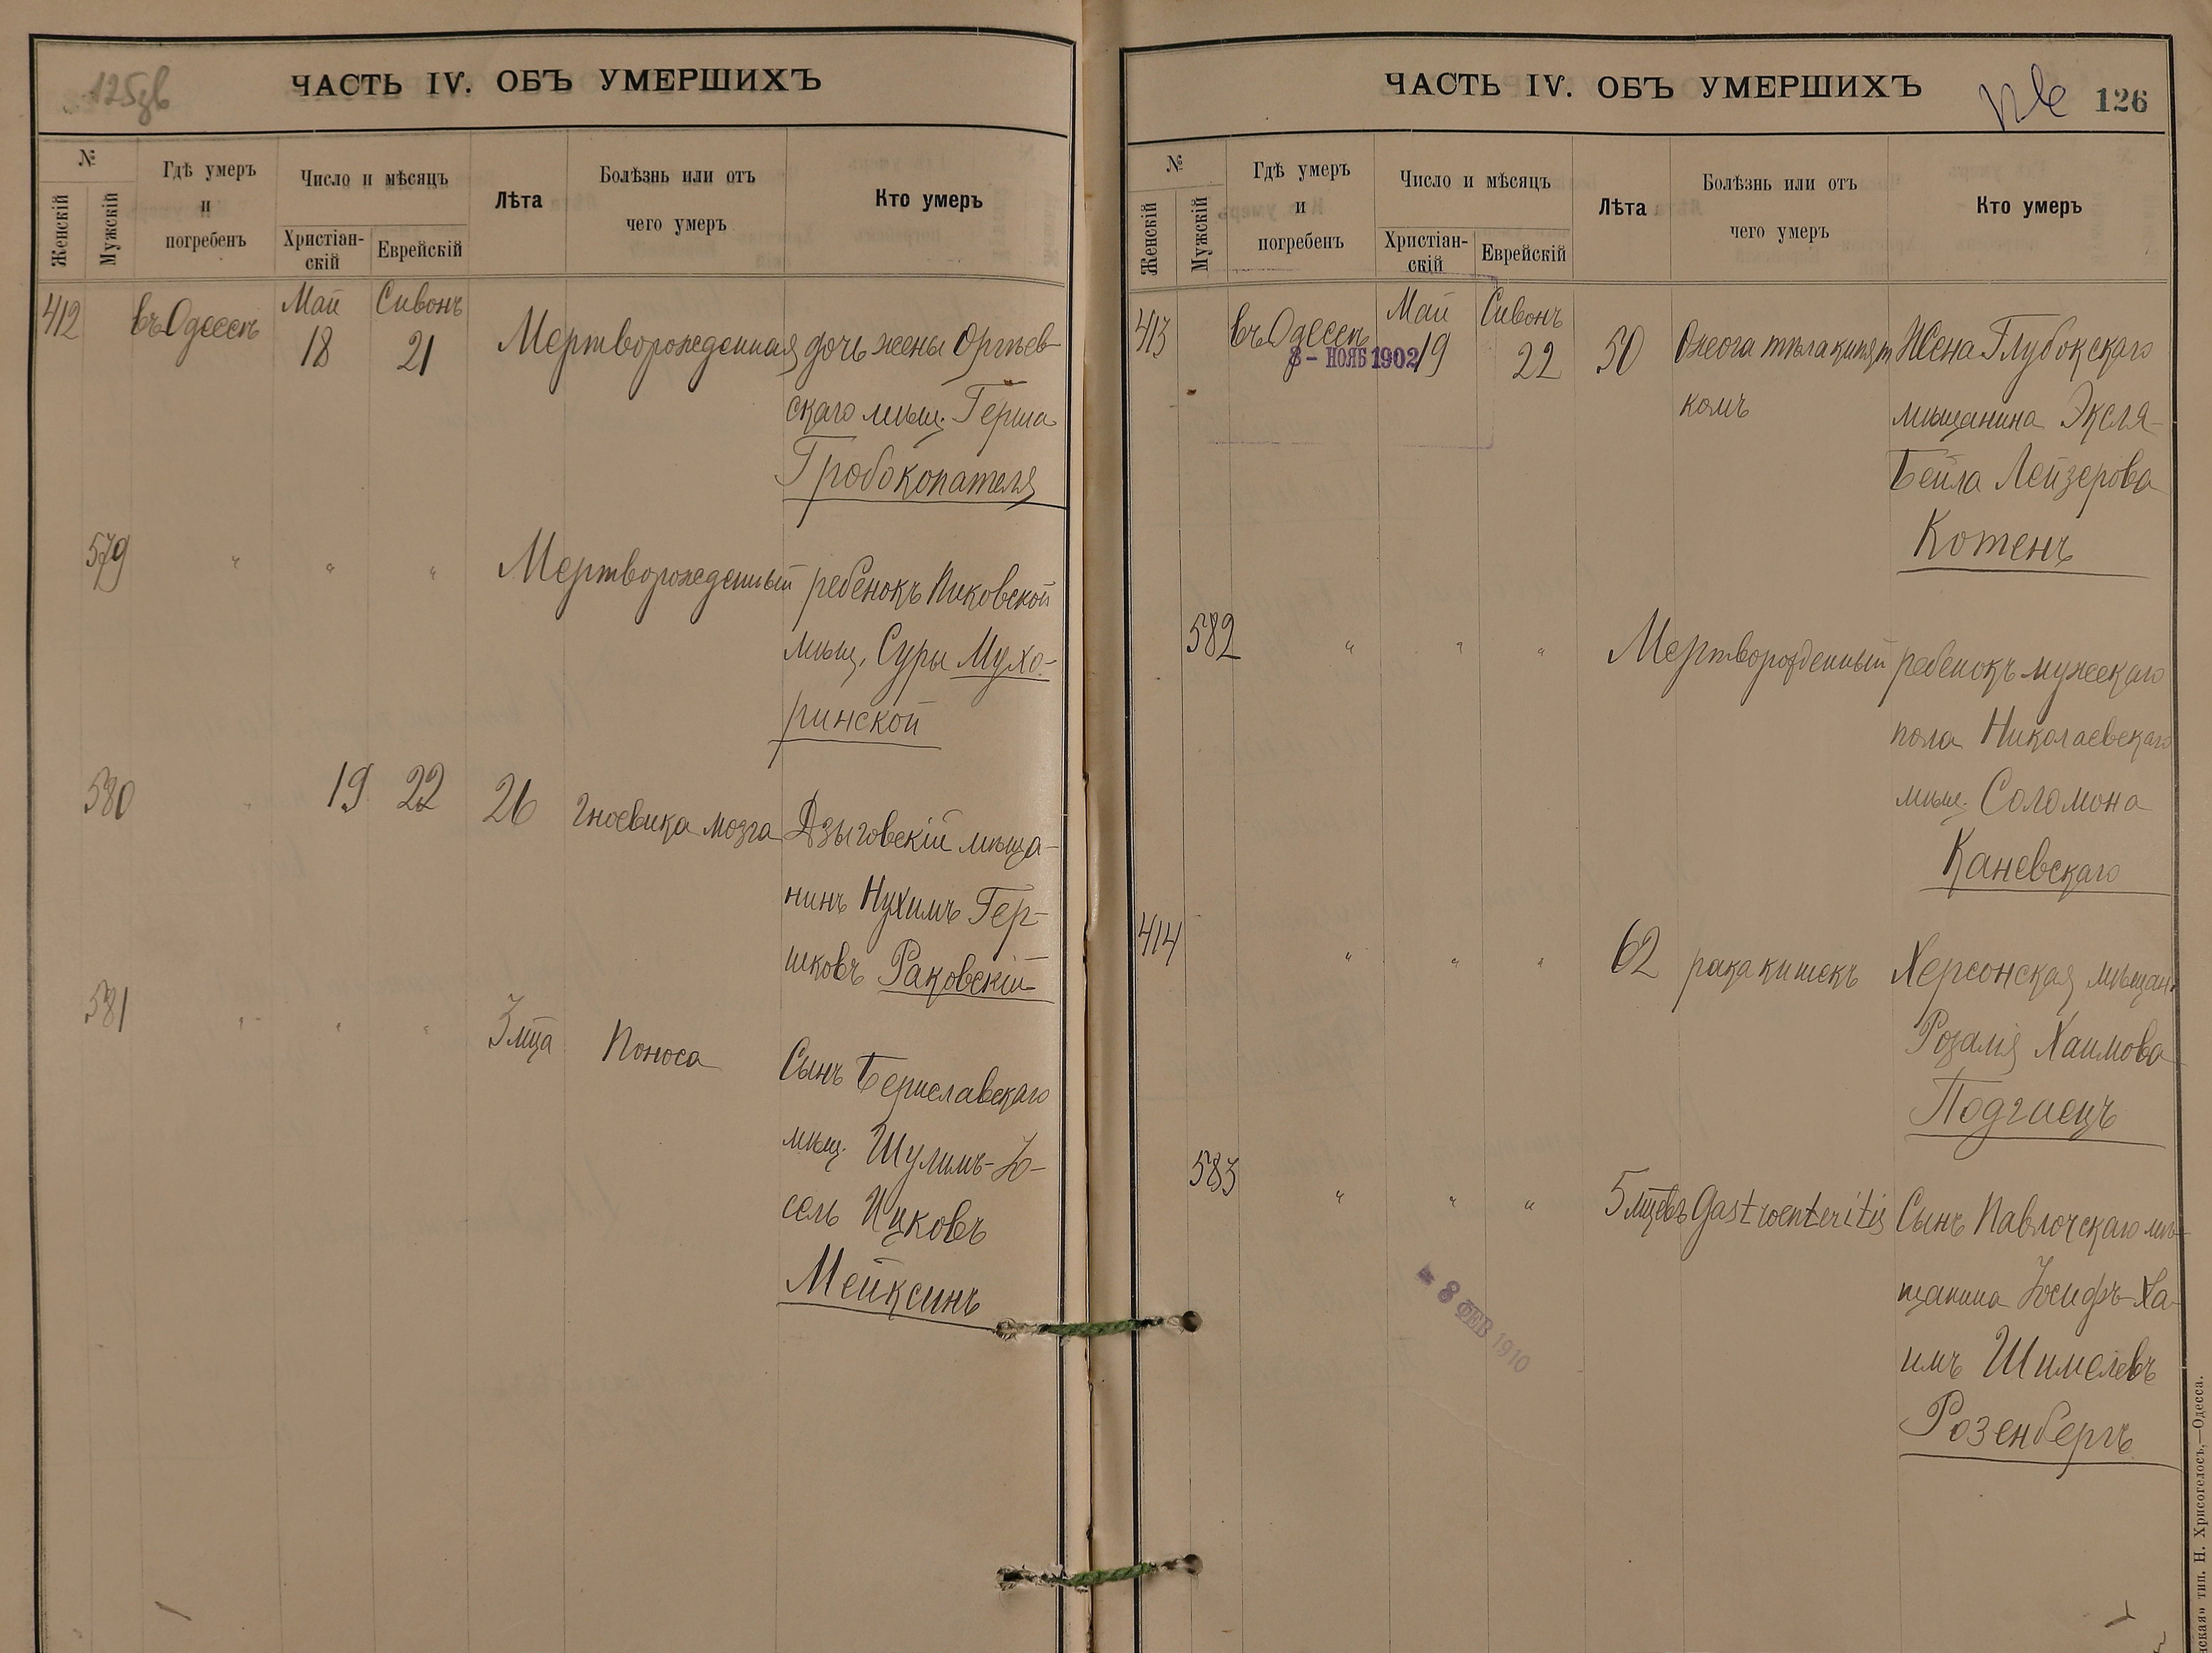 125зв
ЧАСТЬ IV. ОБЪ УМЕРШИХЪ
№
Женскій
Мужскій
Гдѣ умеръ
и
погребенъ
Число и мѣсяцъ
Христіан-
скій
Еврейскій
Лѣта
Болѣзнь или отъ
чего умеръ
Кто умеръ
412 въ Одессѣ Май 18 Сивонъ 21 Мертворожденная дочь жены Оргѣев-
скаго мѣщ. Герша
Гробокопателя
579 " " " Мертворожденный ребенокъ Пиковской
мѣщ. Суры Мухо-
ринской
580 " 19 22 26 Гноевика мозга Дзыговскій мѣща-
нинъ Нухимъ Гер-
шковъ Раковскій
581 " " " 3 мца Поноса Сынъ Бериславскаго
мѣщ. Шулимъ-Іо-
сель Ицковъ
Мейксинъ
ЧАСТЬ IV. ОБЪ УМЕРШИХЪ
126
№
Женскій
Мужскій
Гдѣ умеръ
и
погребенъ
Число и мѣсяцъ
Христіан-
скій
Еврейскій
Лѣта
Болѣзнь или отъ
чего умеръ
Кто умеръ
413 въ Одессѣ Май 19 Сивонъ 22 50 Ожога тѣла кипят Жена Глубокскаго
8 - НОЯБ 1902
комъ мѣщанина Эксля-
Бейла Лейзерова
Котенъ
582 " " " Мертворожденный ребенокъ мужескаго
пола Николаевскаго
мѣщ. Соломона
Каневскаго
414 " " " 62 рака кишекъ Херсонская мѣщан.
Розалія Хаимова
Подгаецъ
583 " " " 5 мцевъ Gastroenteritis Сынъ Паволочскаго мѣ-
щанина Іосифъ-Ха-
имъ Шимелевъ
Розенбергъ
- 8 ФЕВ 1910
тип. Н. Хрисогелосъ,—Одесса.